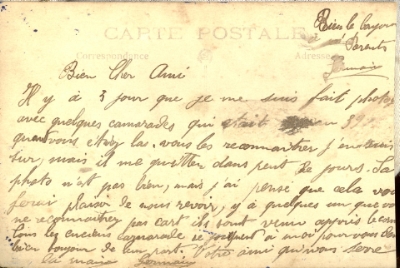 Bien le bonjour
à
Parents
CARTE POSTALE
Correspondance
Adresse
Bien Cher Ami
Il y à 3 jour que je me suis fait photo
avec quelques camarades qui était au 39
quand vous étiez la, vous les reconnaitrer j'en suis
sur, mais il me quitter dans peut de jours. La
photo n'est pas bien, mais j'ai pensé que cela vous
ferais plaisir de nous revoir, y à quelques un que vous
ne reconnaitrez pas cart ils sont venu après
Tous les enciens camarade se joignent à moi pour vous
bien bonjour de leur part. Votre ami qui vous serre
la main